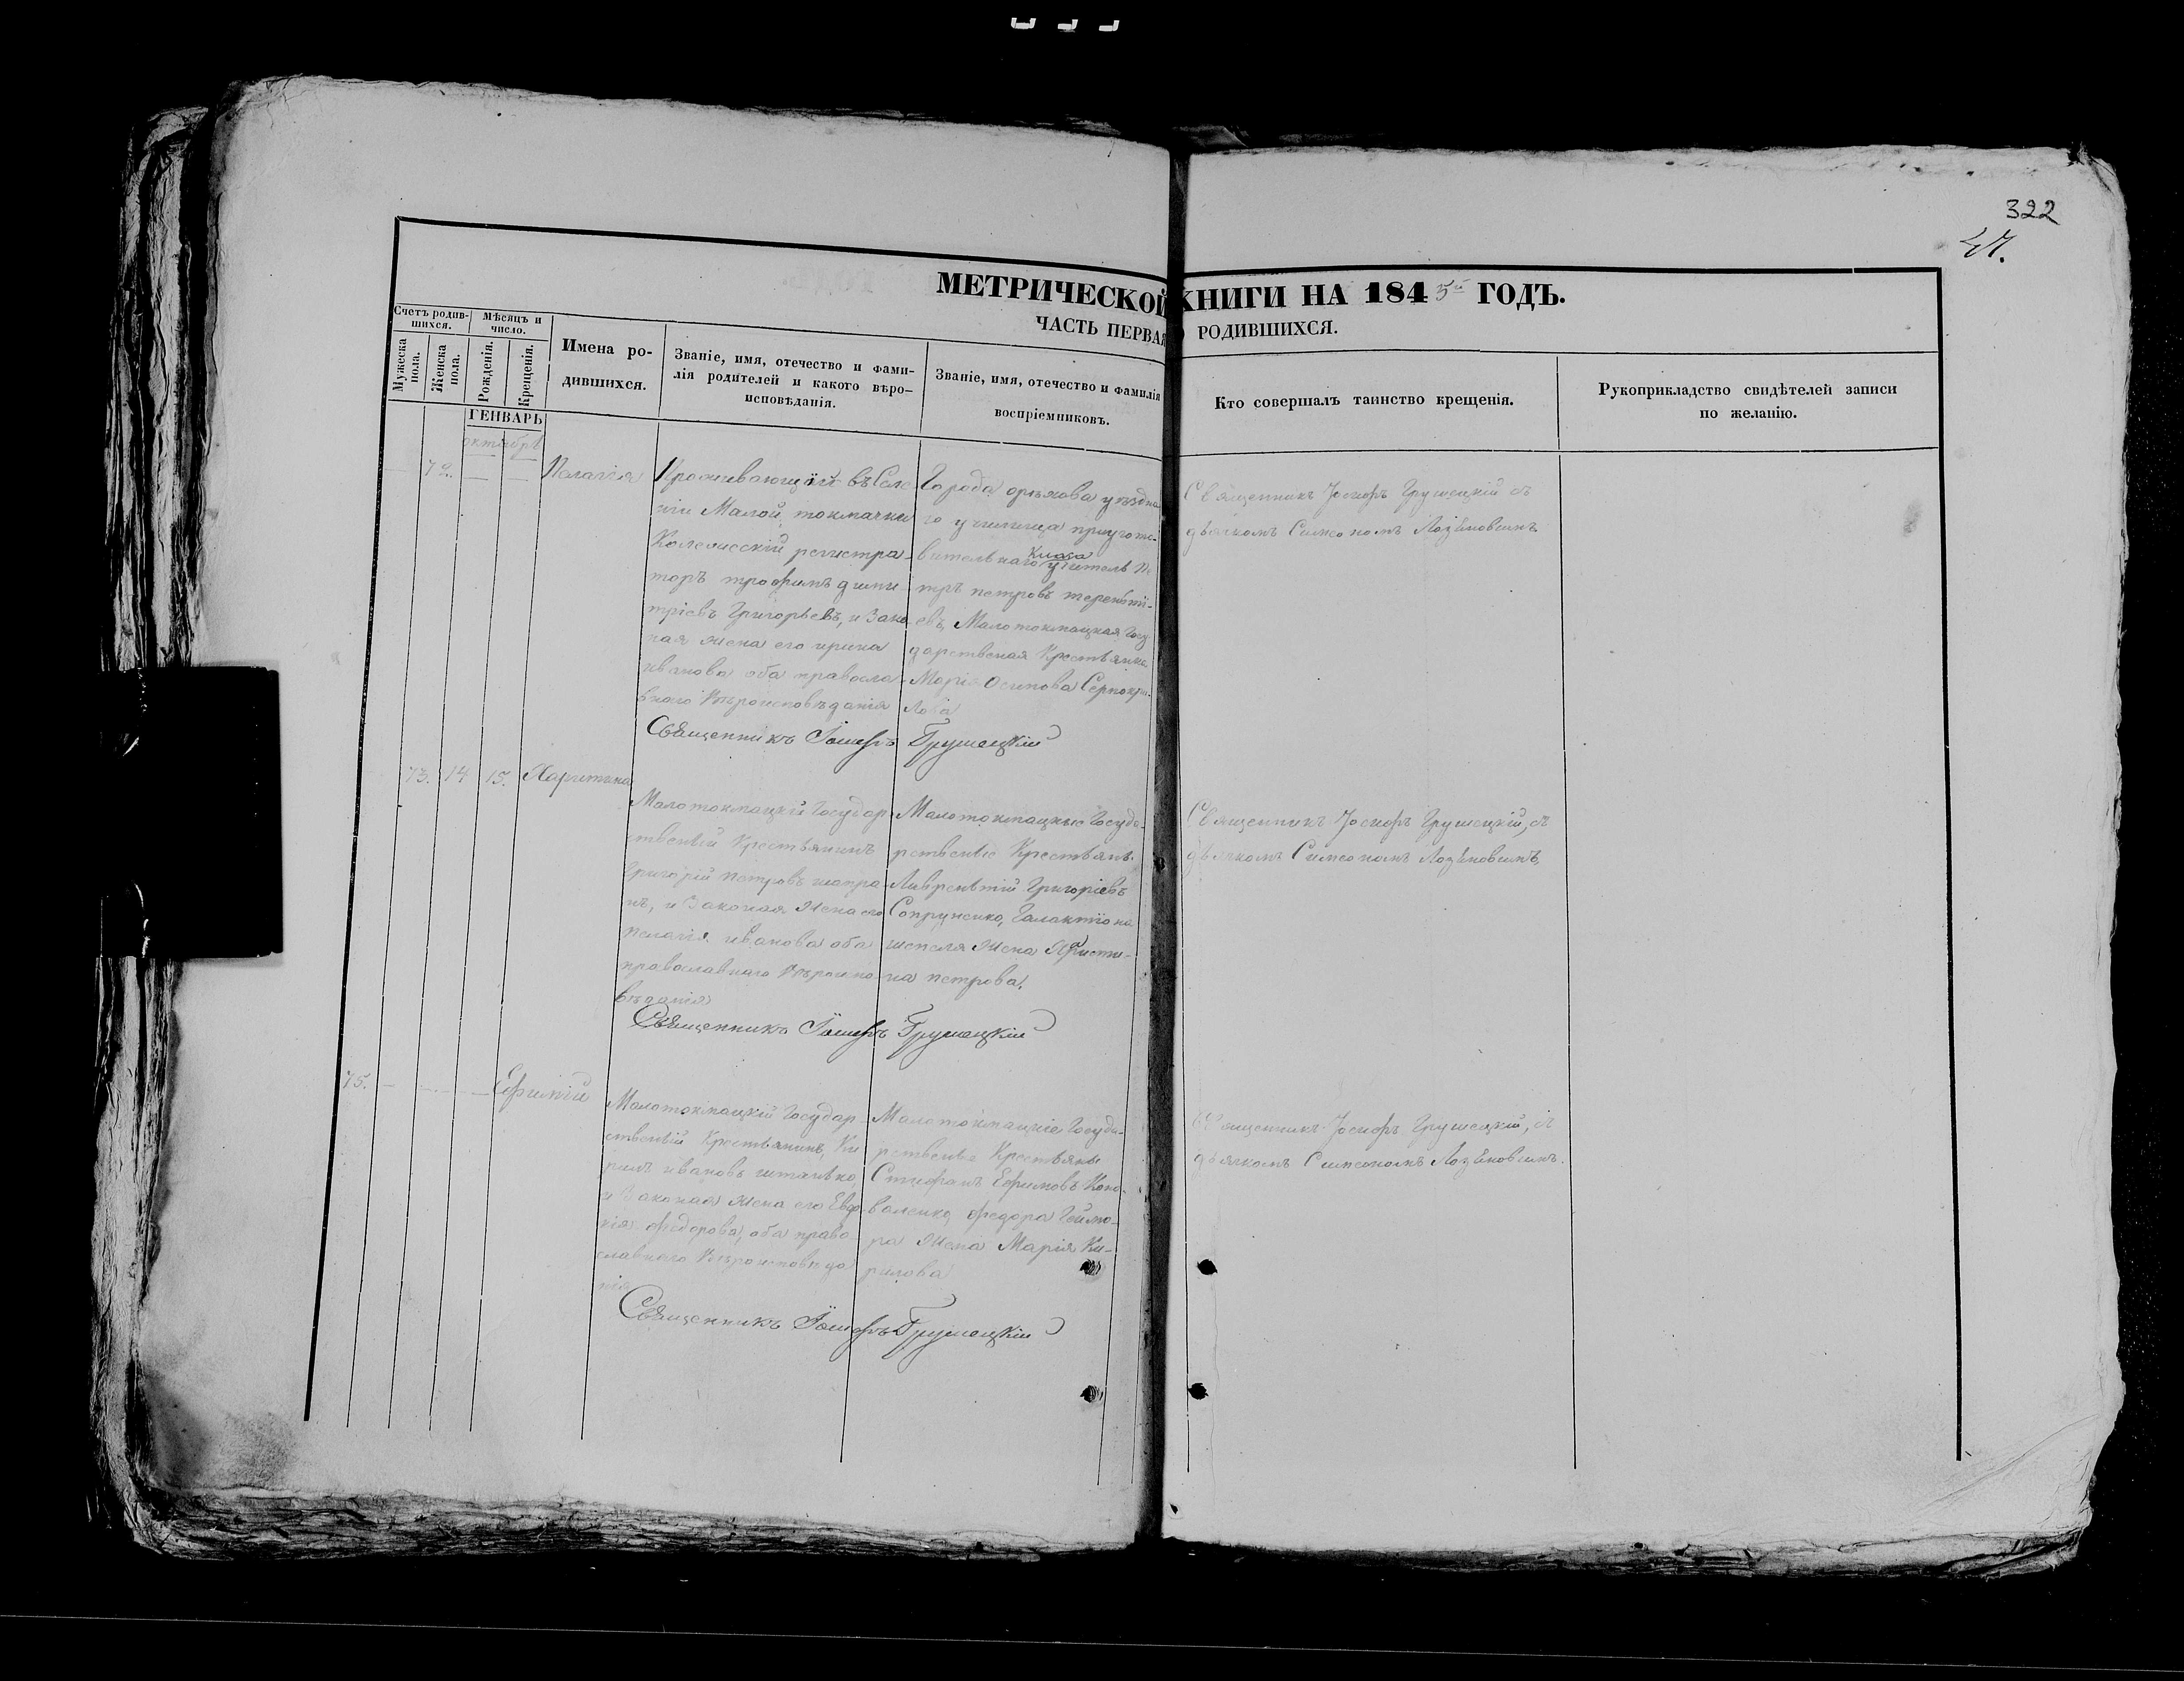 322
47.
МЕТРИЧЕСКОЙ КНИГИ НА 1845й ГОДЪ.
ЧАСТЬ ПЕРВАЯ О РОДИВШИХСЯ.
Счетъ родив-
шихся.
Мужеска
пола.
Женска
пола.
Мѣсяцъ и
число.
Рожденія.
Крещенія.
Имена ро-
дившихся.
Званіе, имя, отечество и фами-
лія родителей и какого вѣро-
исповѣданія.
Званіе, имя, отечество и фамилія
воспріемниковъ.
Кто совершалъ таинство крещенія.
Рукоприкладство свидѣтелей записи
по желанію.
ГЕНВАРЬ
октябрь
72. — —
Пелагія
Проживающій въ Селе-
ніи Малой токмачки
Колежескій регистра-
торъ трофимъ дими-
тріевъ Григорьевъ, и Зако-
ная жена его ирина
иванова оба правосла-
внаго Вѣроисповѣданія
Города орѣхова уѣздна
го училища пригото-
вительнаго Класа учитель Пе
тръ петровъ терентії-
евъ, Малотокмацкая Госу
дарственая Крестьянка
Марія Осипова
лова
Священникъ Іосифъ Грушецкій съ
дьячкомъ Симеономъ Лозѣновимъ.
Священникъ Іосифъ Грушецкій
73. 14 15. Харитина
Малотокмацкій Государ-
ственій Крестьянинъ
Григорій Петровъ
и Законая Жена его
Пелагія иванова оба
православнаго Вѣроиспо-
вѣданія
Малотокмацкые Госуда-
рственіе Крестьяне
Лаврентій Григоріевъ
Сопруненко, Галактіона
шепеля Жена Христи-
на петрова,
Священникъ Іосифъ Грушецкій, съ
дьячкомъ Симеономъ Лозѣновимъ,
Священникъ Іосифъ Грушецкій
75. — — —
Ефимій
Малотокмацкій Государ-
ственій Крестьянинъ, Ки
рилъ ивановъ иштанько
и Законая Жена его Евдо
кія федорова, оба право-
славнаго Вѣроисповѣда
нія
Малотокмацкіе Госуда-
рственіе Крестьяне
Стефанъ Ефимовъ Коно-
валенко, федора
ра Жена Марія Ки-
рилова
Священникъ Іосифъ Грушецкій, съ
дьячкомъ Симеономъ Лозѣновимъ.
Священникъ Іосифъ Грушецкій